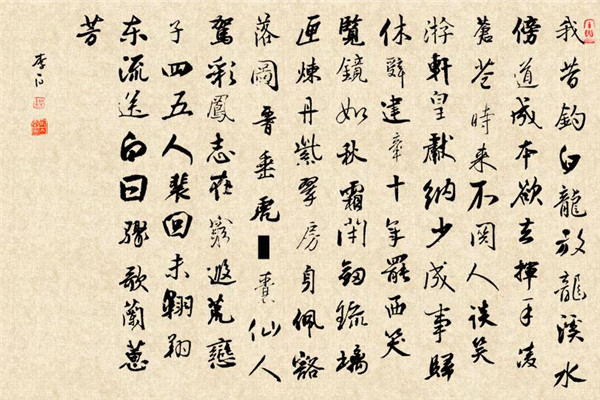 我昔釣白龍放龍溪水
傍道成本欲去揮手凌
蒼蒼時來不関人談笑
游軒皇獻納少成事歸
休辭建章十年罷西笑
覽鏡如秋霜閉劔琉璃
匣煉丹紫翠房身佩豁
落圖垂虎囊仙人
駕彩鳳志在窮遐荒戀
子四五人裴回未翱翔
東流送白日驟歌蘭蕙
芳
李